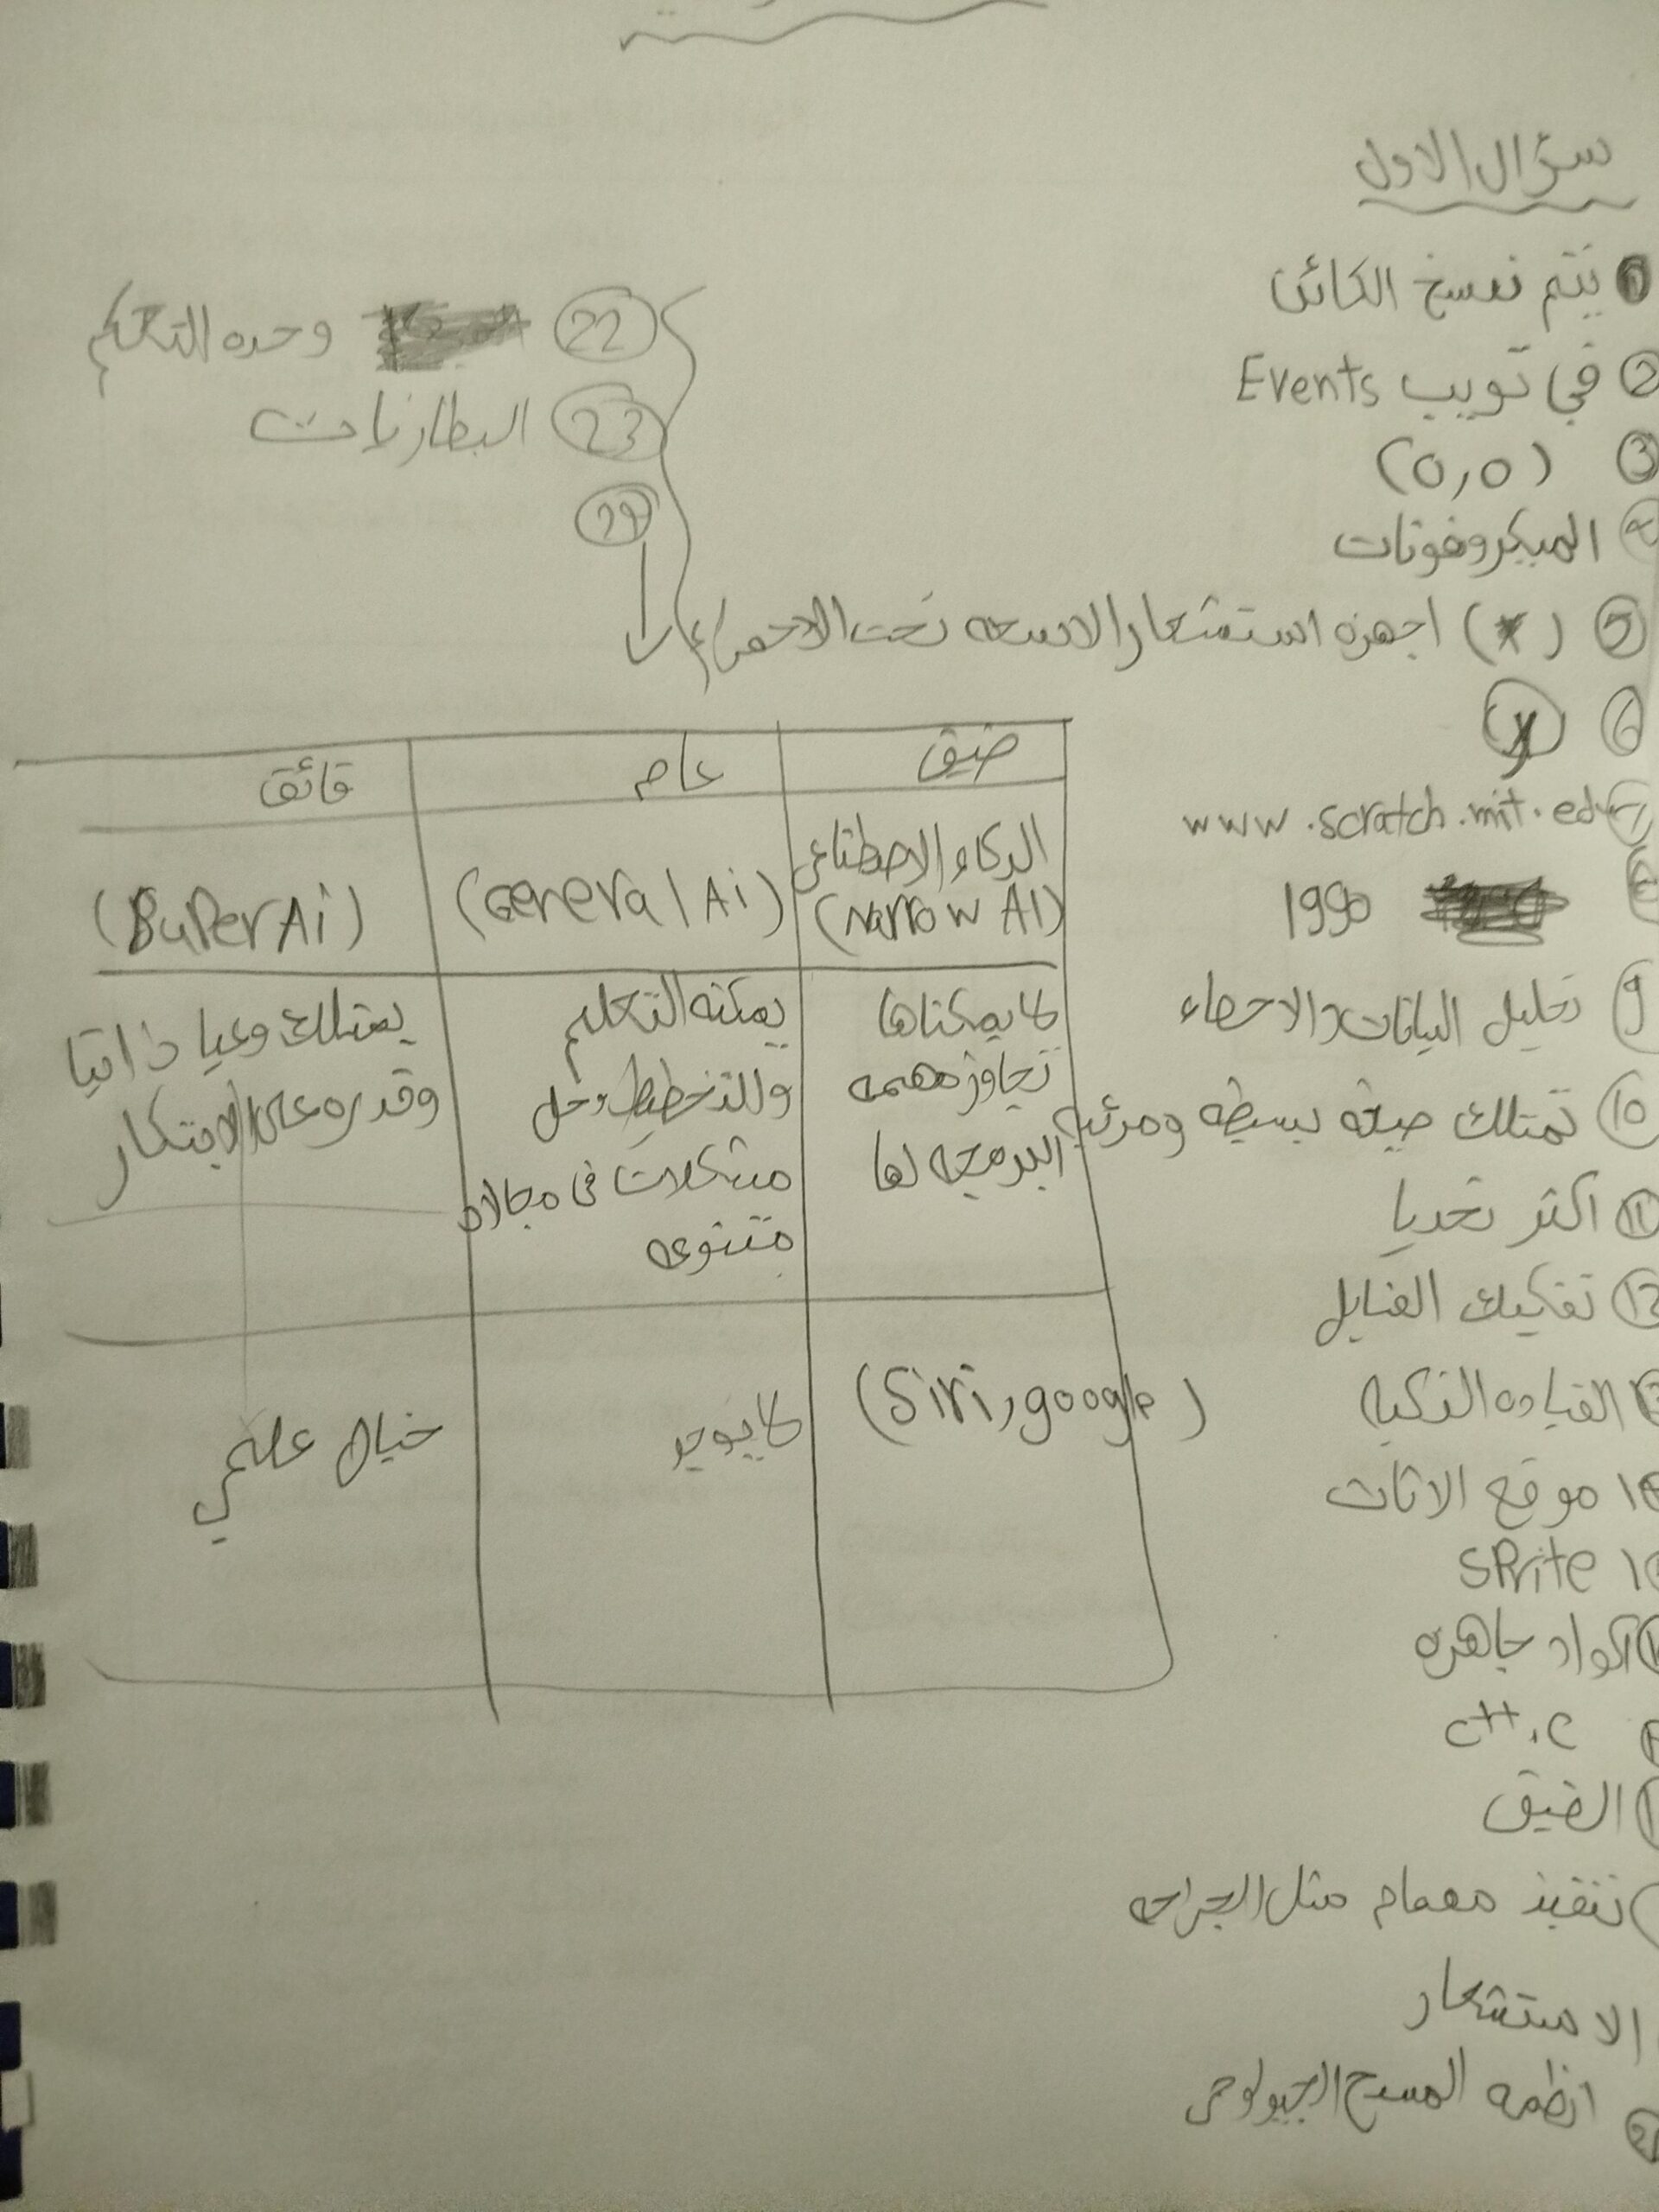 سؤال الاول
1 يتم نسخ الكائن
2 في تبويب Events
3 (0,0)
4 الميكروفونات
5 (x) اجهزه استشعار الاشعه تحت الاحمراء
6 x
7 www.scratch.mit.edu
8 1990
9 تحليل البيانات والاحصاء
10 تمتلك صيغه بسيطه ومرئيه
11 اكثر تحديا
12 تفكيك القنابل
13 القياده الذكيه
14 موقع الاثاث
15 SPrite
اكواد جاهزه
c++,c
الضيق
تنفيذ مهمام مثل الجراحه
الاستشعار
21 انظمه المسح الجيولوجى
22 وحده التحكم
23 البطاريات
24
ضيق
عام
فائق
الذكاء الاصطناعى
(Narrow AI)
(General Ai)
(BuPer Ai)
لا يمكناها
تجاوز مهمه
البرمجه لها
يمكنه التعليم
والتخطيط وحل
مشكلات فى مجالات
متنوعه
يمتلك وعيا ذاتيا
وقدره على الابتكار
(Siri, google)
لا يوجد
خيال علمي